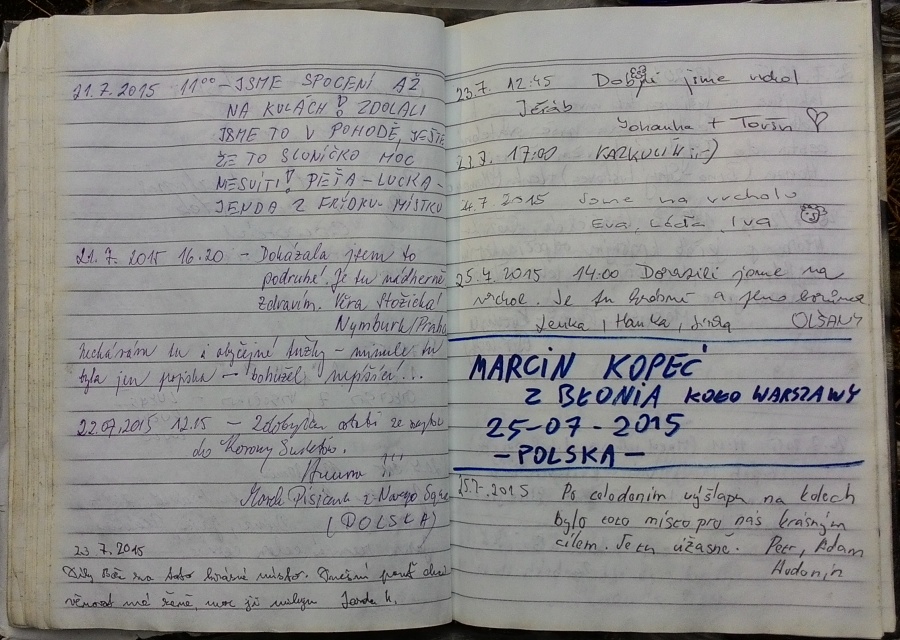 21.7.2015 11°° – JSME SPOCENÍ AŽ
NA KULÁCH! ZDOLALI
JSME TO V POHODĚ, JEŠTĚ
ŽE TO SLUNÍČKO MOC
NESVÍTÍ! PEŤA – LUCKA –
JENDA Z FRÝDKU-MÍSTKU
21.7. 2015 16.20 – Dokázala jsem to
podruhé! Je tu nádherně
Zdravím. Věra Stožická!
Nymburk/Praha
Nechávám tu i obyčejné tužky – minule tu
byla jen propiska – bohužel nepíšící!...
22.07.2015 12.15 – ostatni ze szczytów
do Korony Sudetów.
!!!
z Nowego Sącza
(POLSKA)
23.7.2015
Díky Bohu za toto krásné místo. Dnešní pouť chci
věnovat mé ženě, moc ji miluju Jarda K.
23.7. 12:45 Dobyli jsme vrchol
Jeřáb
Johanka + Tovšn
23.7. 17:00 KAZKULIH :-)
24.7 2015 Jsme na vrcholu
Eva, Láďa, Iva
25.7.2015 14:00 Dorazili jsme na
vrchol. Je tu krásně a jsou borůvce
Lenka, Hanka, Jirka OLŠANY
MARCIN KOPEĆ
Z BŁONIA KOŁO WARSZAWY
25-07-2015
– POLSKA –
25.7.2015 Po celodením výšlapu na kolech
bylo toto místo pro nás krásným
cílem. Je tu úžasně. Petr, Adam
Hodonín